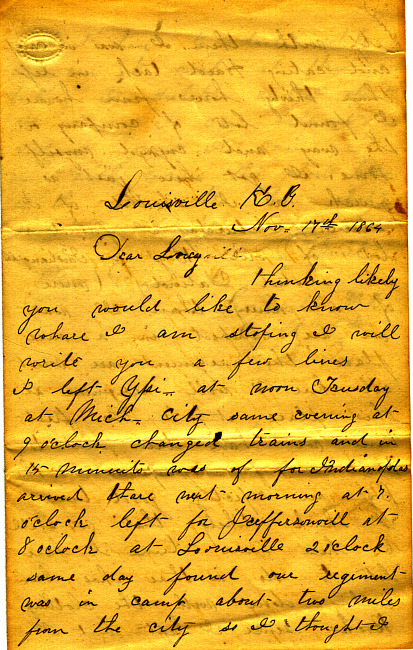 Louisville K.
Nov. 17th 1864
Dear
thinking likely
you would like to know
whare I am stoping I will
write you a few lines
I left Ypi- at noon Tuesday
at Mich. City same evening at
9 o'clock changed trains and in
15 minuits was of for Indianapolis
arived thare next morning at 7.
o'clock left for Jeffersonvill at
8 o'clock at Louisville 2 o'clock
same day found our regiment
was in camp about two miles
from the city so I thought I